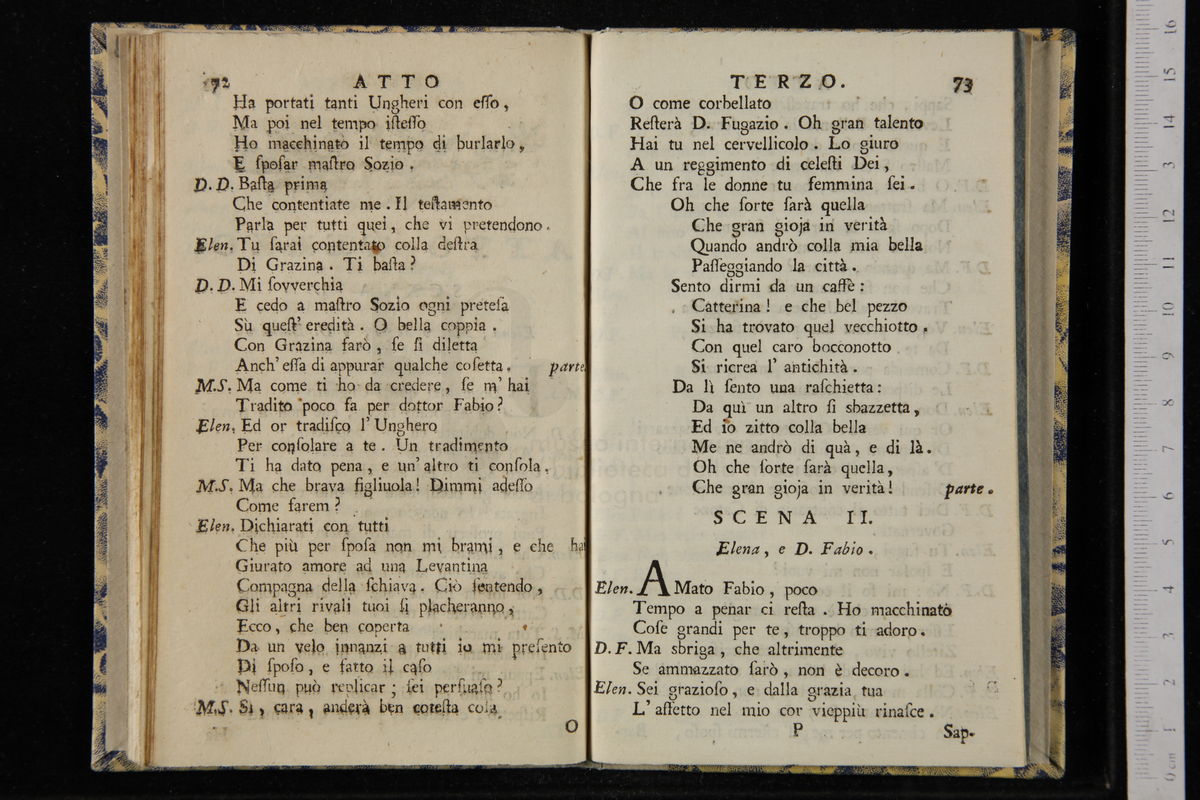 72 ATTO
Ha portati tanti Ungheri con eſſo,
Ma poi nel tempo iſteſſo
Ho macchinato il tempo di burlarlo,
E ſpoſar maſtro Sozio.
D. D. Baſta prima
Che contentiate me. Il teſtamento
Parla per tutti quei, che vi pretendono.
Elen. Tu ſarai contentato colla deſtra
Di Grazina. Ti baſta?
D. D. Mi ſovverchia
E cedo a maſtro Sozio ogni preteſa
Sù queſt' eredità. O bella coppia.
Con Grazina farò, ſe ſi diletta
Anch' eſſa di appurar qualche coſetta. parte.
M.S. Ma come ti ho da credere, ſe m' hai
Tradito poco fa per dottor Fabio?
Elen. Ed or tradiſco l' Unghero
Per conſolare a te. Un tradimento
Ti ha dato pena, e un' altro ti conſola.
M.S. Ma che brava figliuola! Dimmi adeſſo
Come farem?
Elen. Dichiarati con tutti
Che più per ſpoſa non mi brami, e che hai
Giurato amore ad una Levantina
Compagna della ſchiava. Ciò ſentendo,
Gli altri rivali tuoi ſi placheranno,
Ecco, che ben coperta
Da un velo innanzi a tutti io mi preſento
Di ſpoſo, e fatto il caſo
Neſſun può replicar; ſei perſuaſo?
M.S. Si, cara, anderà ben coteſta coſa
O
TERZO. 73
O come corbellato
Reſterà D. Fugazio. Oh gran talento
Hai tu nel cervellicolo. Lo giuro
A un reggimento di celeſti Dei,
Che fra le donne tu femmina ſei.
Oh che ſorte ſarà quella
Che gran gioja in verità
Quando andrò colla mia bella
Paſſeggiando la città.
Sento dirmi da un caffè:
Catterina! e che bel pezzo
Si ha trovato quel vecchiotto.
Con quel caro bocconotto
Si ricrea l' antichità.
Da lì ſento una raſchietta:
Da quì un altro ſi sbazzetta,
Ed io zitto colla bella
Me ne andrò di quà, e di là.
Oh che ſorte ſarà quella,
Che gran gioja in verità! parte.
SCENA II.
Elena, e D. Fabio.
Elen. AMato Fabio, poco
Tempo a penar ci reſta. Ho macchinato
Coſe grandi per te, troppo ti adoro.
D. F. Ma sbriga, che altrimente
Se ammazzato ſarò, non è decoro.
Elen. Sei grazioſo, e dalla grazia tua
L' affetto nel mio cor vieppiù rinaſce.
P Sap-